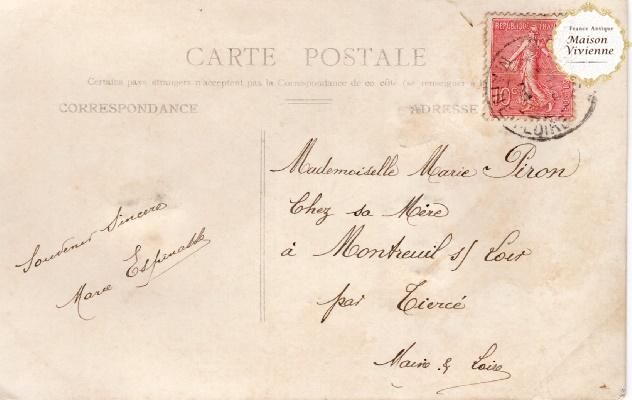 France Antique
Maison
Vivienne
REPUBLIQUE FRANÇAISE
10c
LOIRE
CARTE POSTALE
Certains pays étrangers n'acceptent pas la Correspondance de ce côté (se renseigner à
CORRESPONDANCE
ADRESSE
Souvenir Sincère
Marie Espinasse
Mademoiselle Marie Piron
Chez sa Mère
à Montreuil s/ Loir
par Tiercé
Maine & Loire